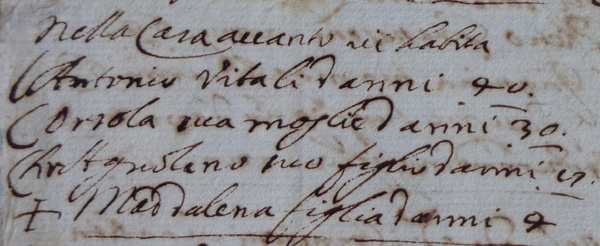 Nella Casa accanto vi habita
C Antonio Vitali d anni 40.
C Orsola sua moglie d anni 30.
C suo figlio d anni
+ Maddalena figlia d anni 4